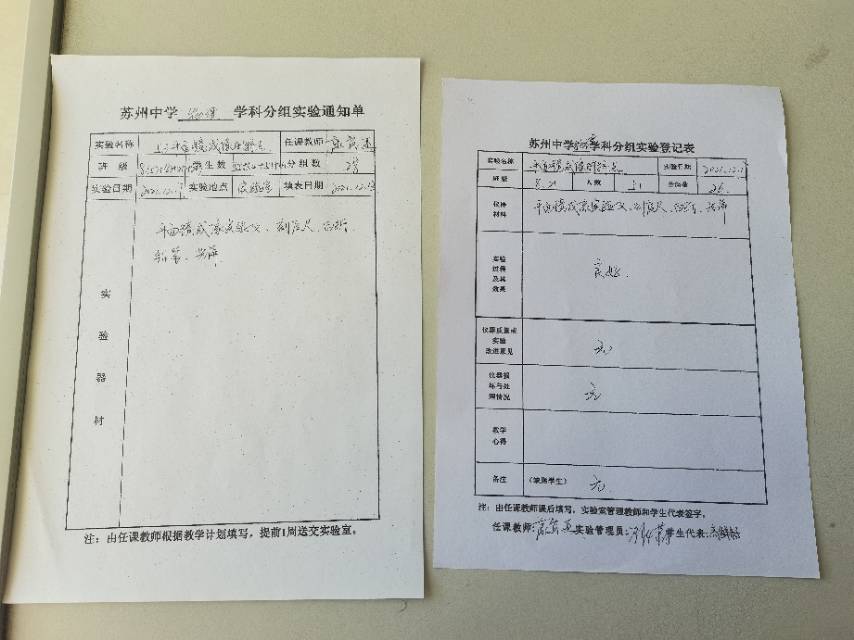 苏州中学 物理 学科分组实验通知单
实验名称 平面镜成像的特点 任课教师
班 级 学生数 分组数
实验日期 2021.12. 实验地点 实验室 填表日期 2021.12.
实验器材
平面镜成像实验仪、刻度尺、白纸、
铅笔、光屏
注：由任课教师根据教学计划填写，提前1周送交实验室。
苏州中学 物理 学科分组实验登记表
实验名称 平面镜成像的特点 实验日期 2021.12.
班 级 8.21 人数 51 分组数 26
仪器材料 平面镜成像实验仪、刻度尺、白纸、光屏
实验过程及其效果 良好.
仪器质量或实验改进意见 无
仪器损坏与处理情况 无
教学心得
备注 (缺席学生) 无
注：由任课教师课后填写，实验室管理教师和学生代表签字。
任课教师: 实验管理员: 学生代表: